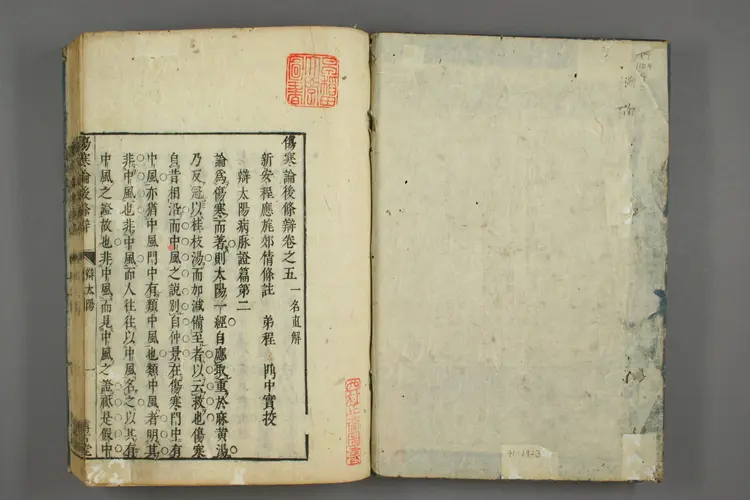 傷寒論後條辯卷之五 一名直解
新安程應旄郊倩條註 弟程 中實挍
辯太陽病脉證篇第二
論爲傷寒而著則太陽一經自應取重於麻黃湯
乃反冠以桂枝湯而加減備至者以云救也傷寒
自昔相沿而中風之說別自仲景在傷寒門中有
中風亦猶中風門中有類中風也類中風者明其
非中風也非中風而人往往以中風名之以其有
中風之證故也非中風而見中風之證祗是假中
傷寒論後條辯
辯太陽
一
早稻田
圖書
91-1923